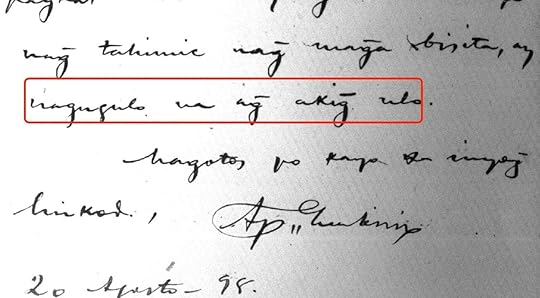 nag̃ tahimic nag̃ mag̃a bisita, ay
nagugulo na ag̃ akig̃ ulo.
Magotos po kayo sa inyog̃
linkod.,
Ap„
20 Agosto - 98.